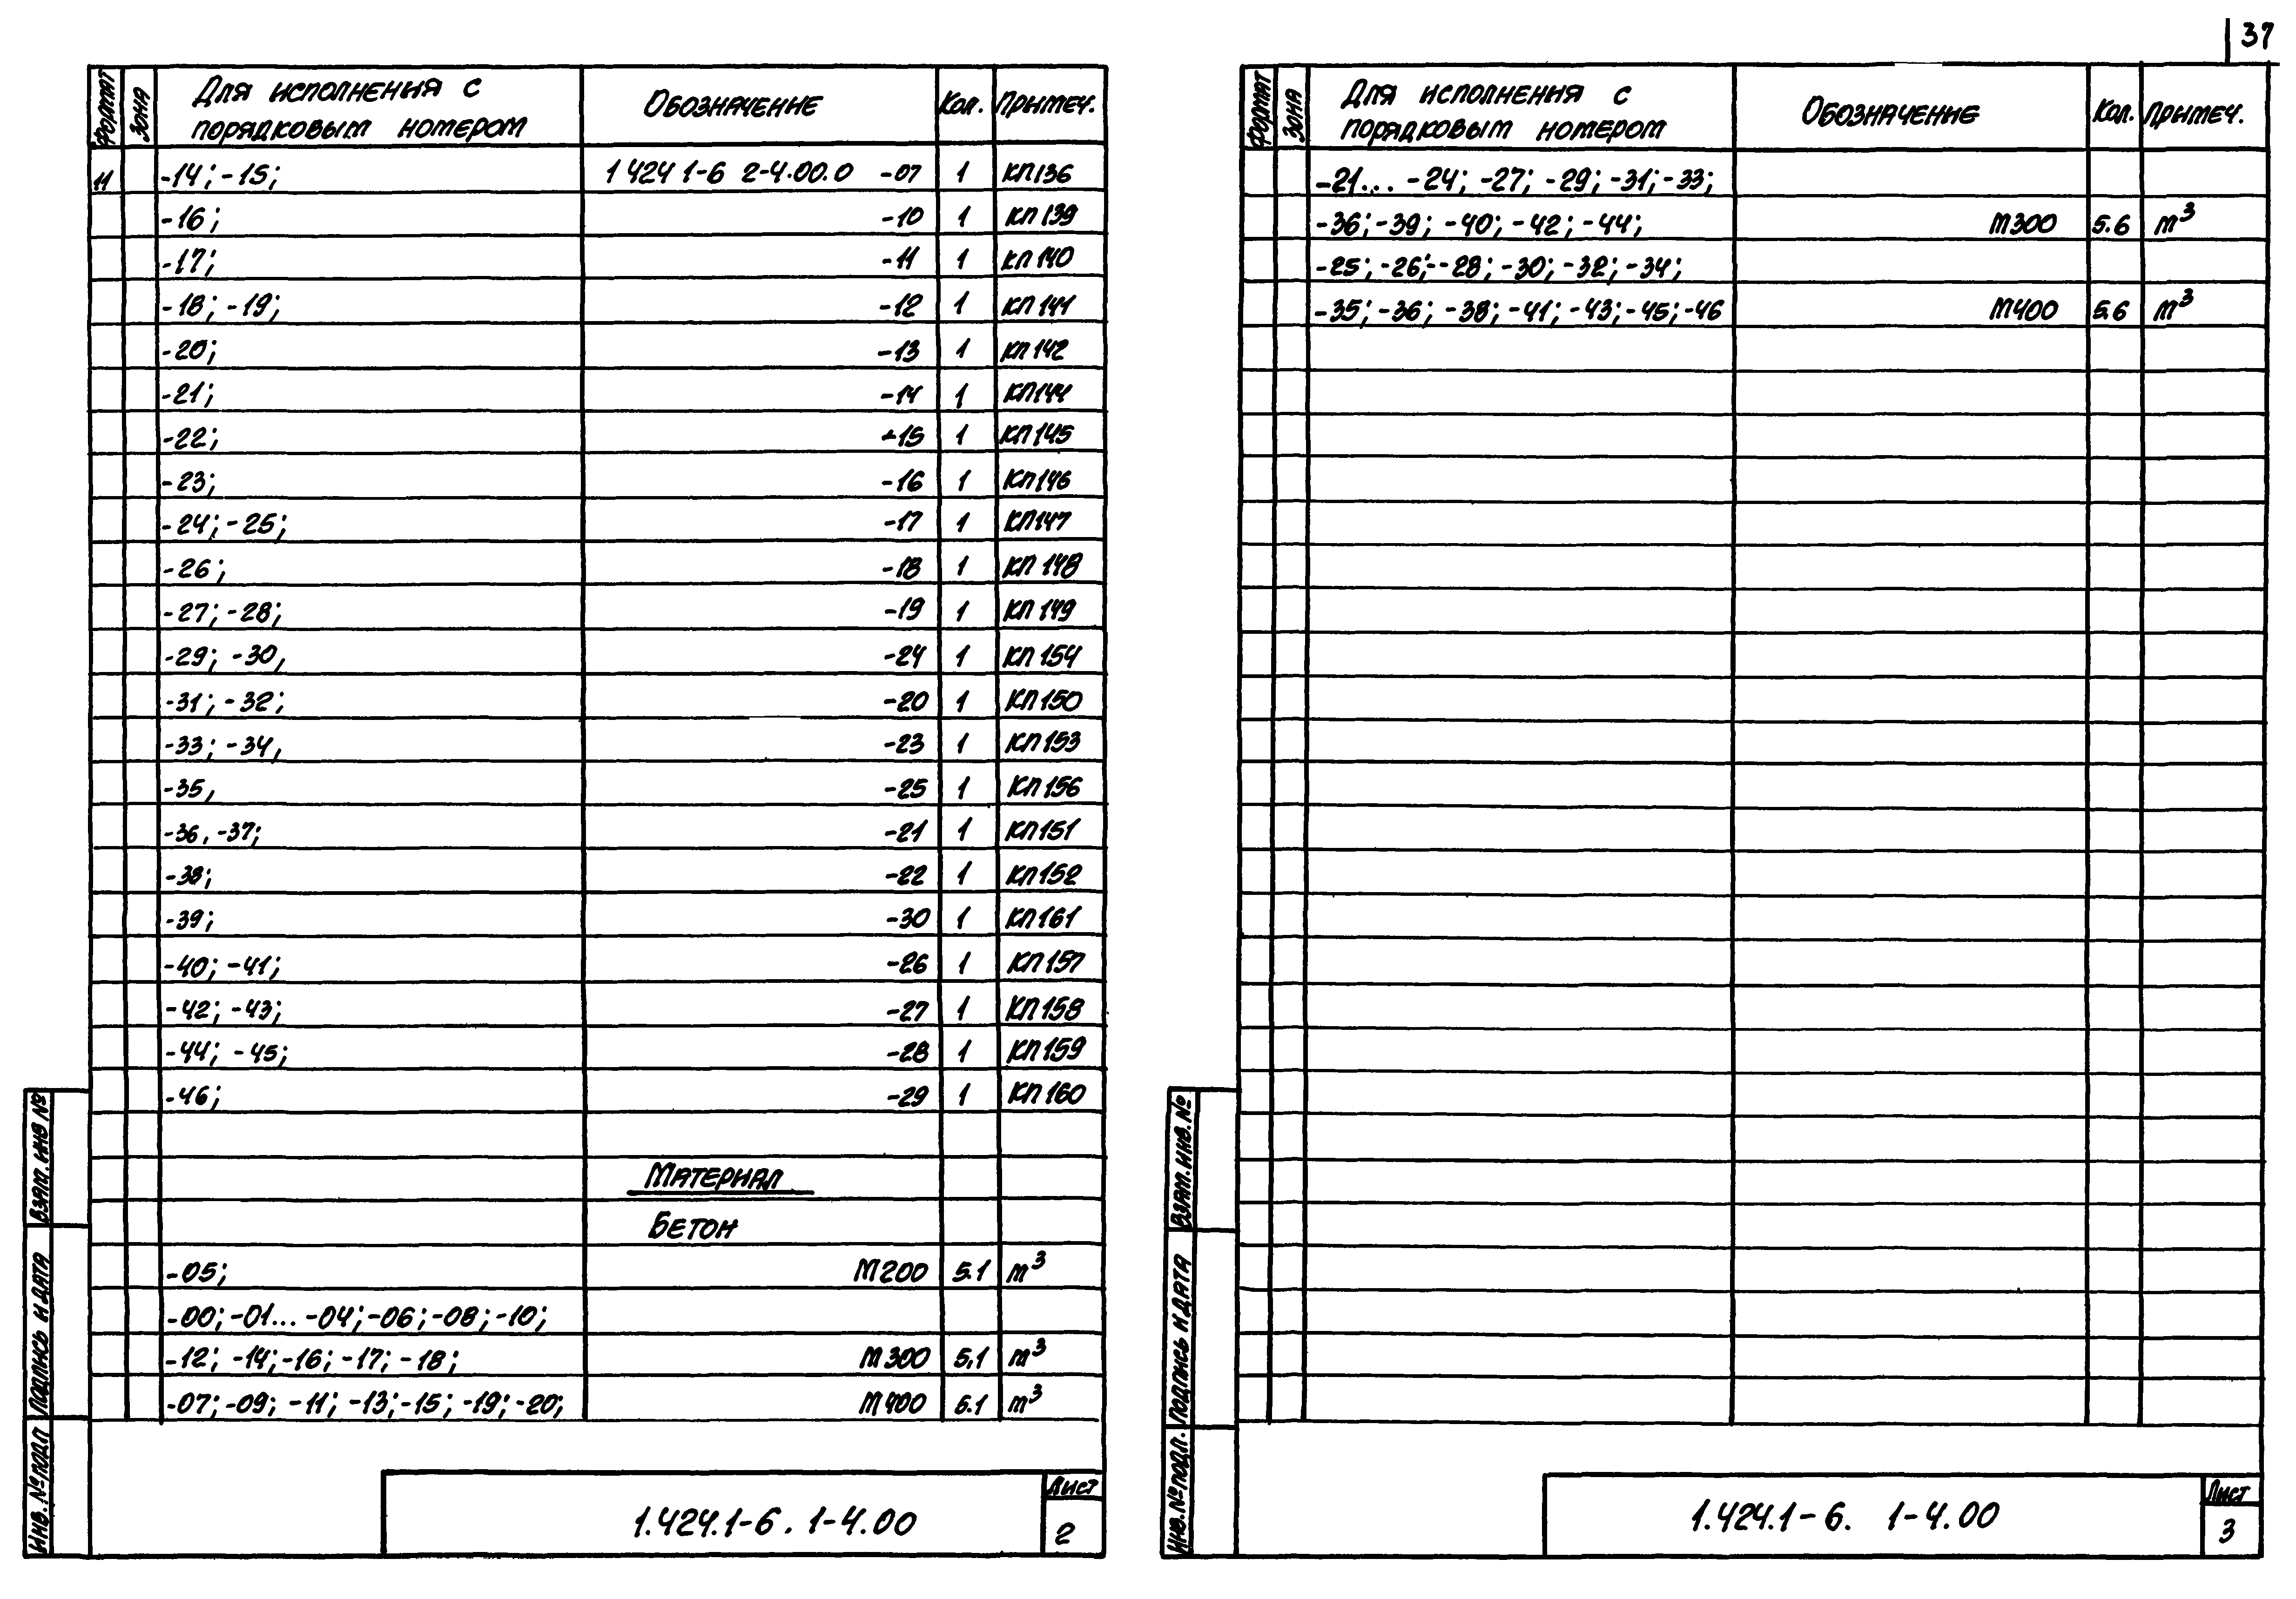 37
Формат
Зона
Для исполнения с
порядковым номером
Обозначение
Кол.
Примеч.
11 -14; -15; 1 424 1-6 2-4.00.0 -07 1 КП136
-16; -10 1 КП139
-17; -11 1 КП140
-18; -19; -12 1 КП141
-20; -13 1 КП142
-21; -14 1 КП144
-22; -15 1 КП145
-23; -16 1 КП146
-24; -25; -17 1 КП147
-26; -18 1 КП148
-27; -28; -19 1 КП149
-29; -30, -24 1 КП154
-31; -32; -20 1 КП150
-33; -34, -23 1 КП153
-35, -25 1 КП156
-36, -37; -21 1 КП151
-38; -22 1 КП152
-39; -30 1 КП161
-40; -41; -26 1 КП157
-42; -43; -27 1 КП158
-44; -45; -28 1 КП159
-46; -29 1 КП160
Материал
Бетон
-05; М200 5.1 м³
-00; -01... -04; -06; -08; -10;
-12; -14; -16; -17; -18; М300 5,1 м³
-07; -09; -11; -13; -15; -19; -20; М400 5.1 м³
Взам. инв №
Подпись и дата
Инв. № подл
1.424.1-6. 1-4.00
Лист
2
Формат
Зона
Для исполнения с
порядковым номером
Обозначение
Кол.
Примеч.
-21... -24; -27; -29; -31; -33;
-36; -39; -40; -42; -44; М300 5.6 м³
-25; -26; -28; -30; -32; -34;
-35; -36; -38; -41; -43; -45; -46 М400 5.6 м³
Взам. инв. №
Подпись и дата
Инв. № подл.
1.424.1-6. 1-4.00
Лист
3